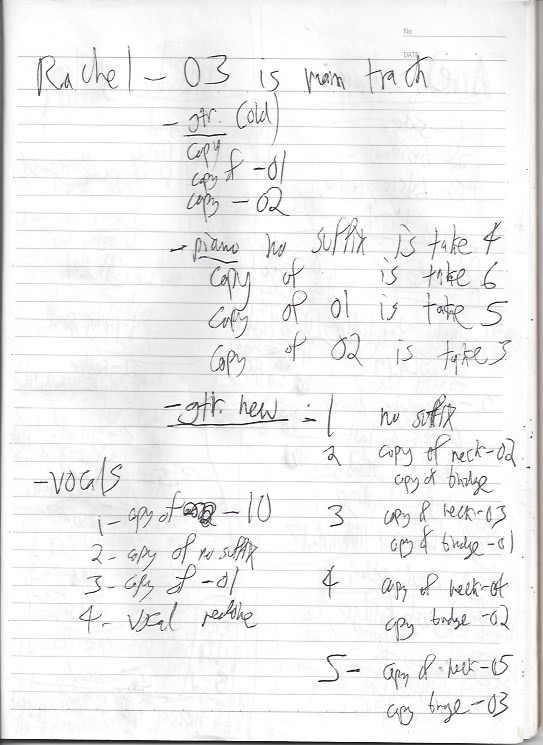 No.
DATE
Rachel - 03 is main track
- gtr. (old)
copy
copy of -01
copy -02
- piano no suffix is take 4
copy of is take 6
copy of 01 is take 5
copy of 02 is take 3
- gtr. new = 1 no suffix
2 copy of neck-02
copy of bridge
3 copy of neck-03
copy of bridge -01
4 copy of neck-04
copy bridge -02
5 - copy of neck-05
copy bridge -03
- vocals
1 - copy of -10
2 - copy of no suffix
3 - copy of -01
4 - vocal redone